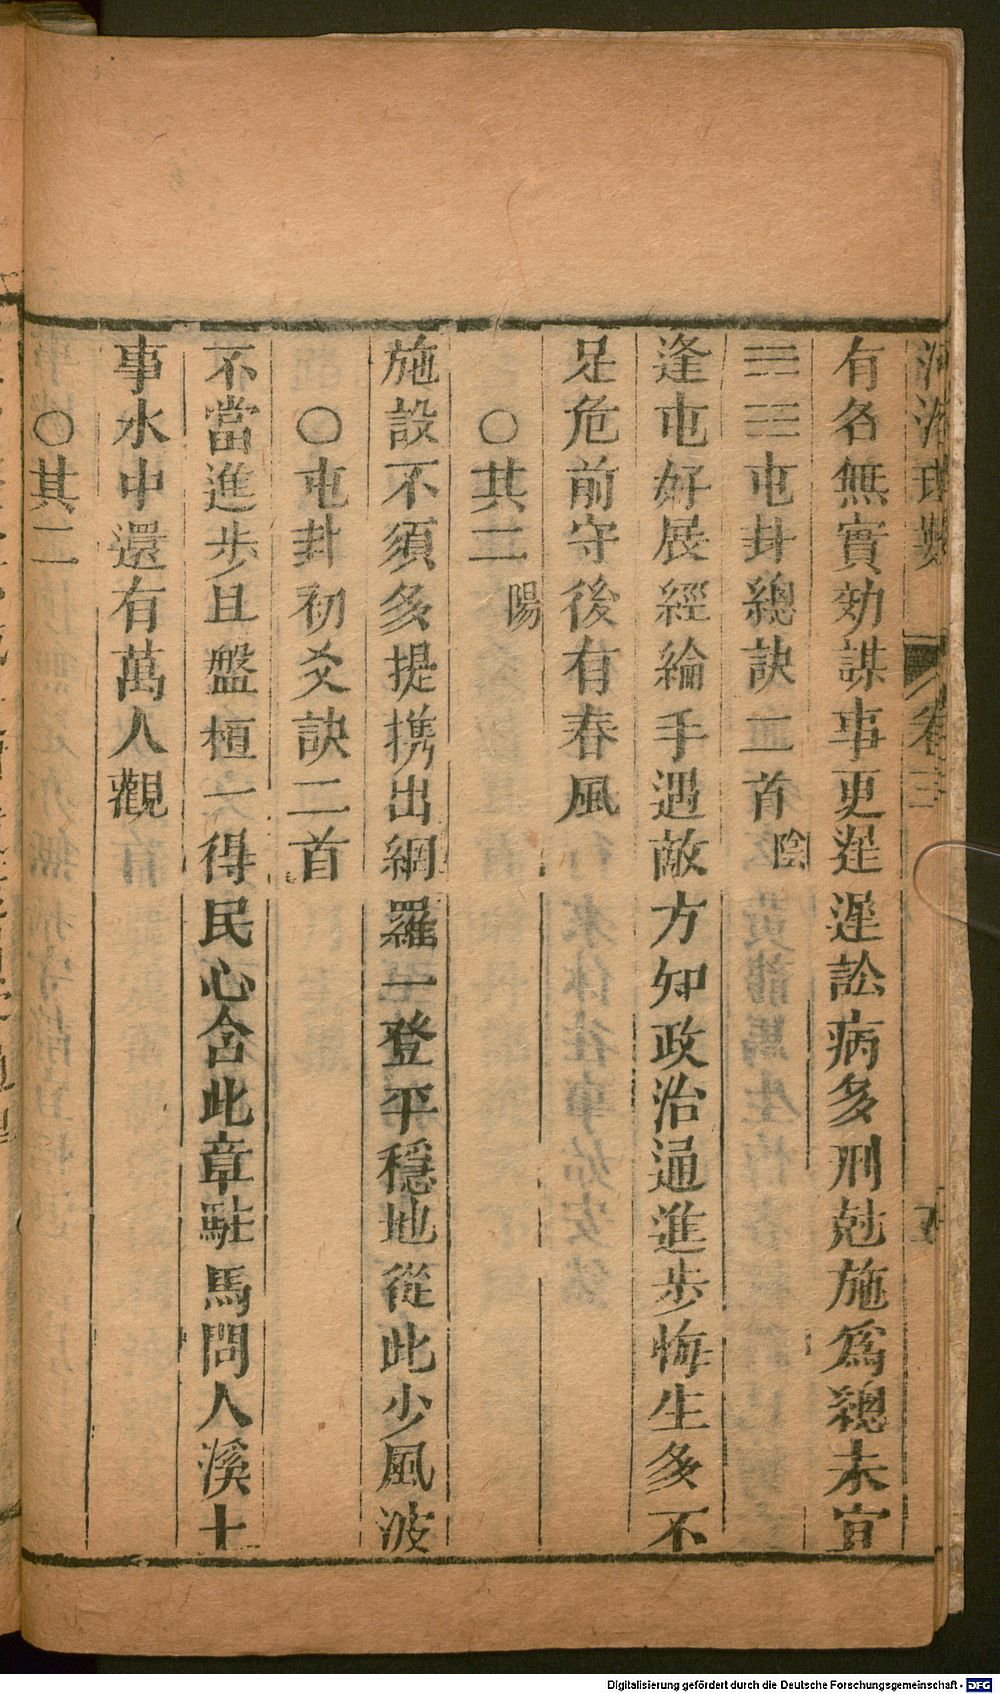 河洛理數 卷三 五
有名無實効謀事更遲遲訟病多刑尅施爲總未宜
☵☳屯卦總訣二首 陰
逢屯好展經綸手遇敵方知政治通進步悔生多不
足危前守後有春風
○其二 陽
施設不須多提携出網羅一登平穩地從此少風波
○屯卦初爻訣二首
不當進步且盤桓一得民心含此章駐馬問人溪上
事水中還有萬人觀
○其二
Digitalisierung gefördert durch die Deutsche Forschungsgemeinschaft - DFG